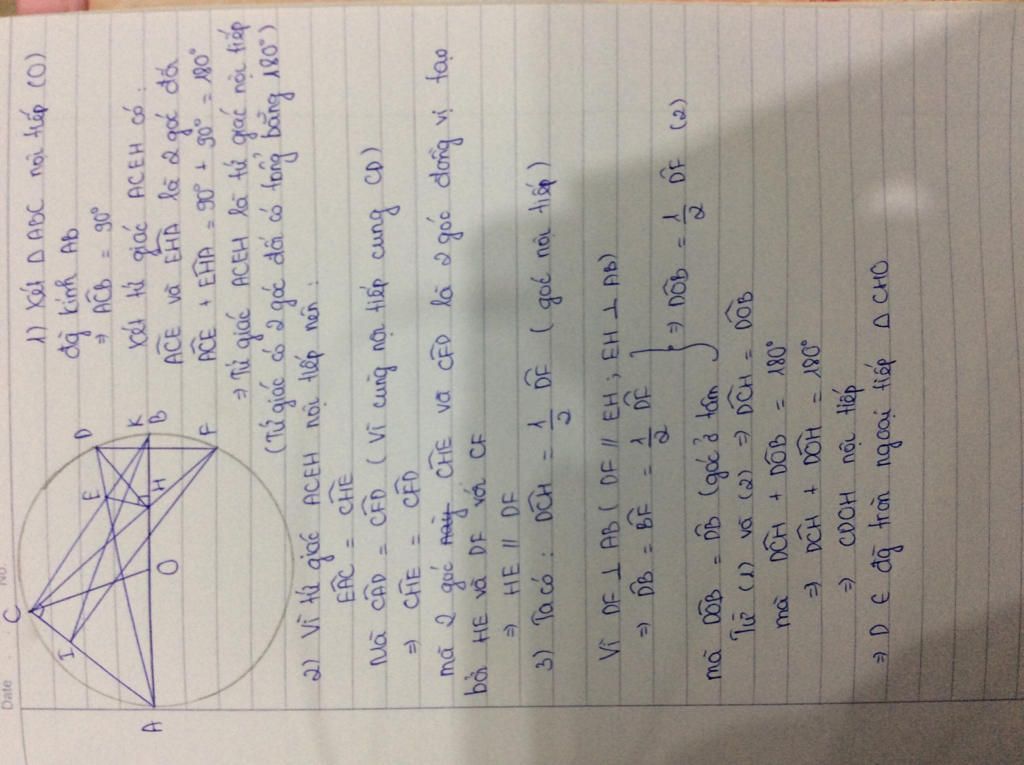 Date
No.
C
I
A
O
H
E
D
K
B
F
1) Xét ΔABC nội tiếp (O)
đg kính AB
⇒ ACB = 90°
Xét tứ giác ACEH có:
ACE và EHA là 2 góc đối
ACE + EHA = 90° + 90° = 180°
⇒ Tứ giác ACEH là tứ giác nội tiếp
(Tứ giác có 2 góc đối có tổng bằng 180°)
2) Vì tứ giác ACEH nội tiếp nên:
EAC = CHE
Mà CAD = CFD (Vì cùng nội tiếp cung CD)
⇒ CHE = CFD
mà 2 góc này CHE và CFD là 2 góc đồng vị tạo
bởi HE và DF với CF
⇒ HE // DF
3) Ta có: DCH = 1/2 DF (góc nội tiếp)
Vì DF ⊥ AB (DF // EH; EH ⊥ AB)
⇒ DB = BF = 1/2 DF
mà DOB = DB (góc ở tâm)
} ⇒ DOB = 1/2 DF (2)
Từ (1) và (2) ⇒ DCH = DOB
mà DCH + DOB = 180°
⇒ DCH + DOH = 180°
⇒ CDOH nội tiếp
⇒ D ∈ đg tròn ngoại tiếp ΔCHO